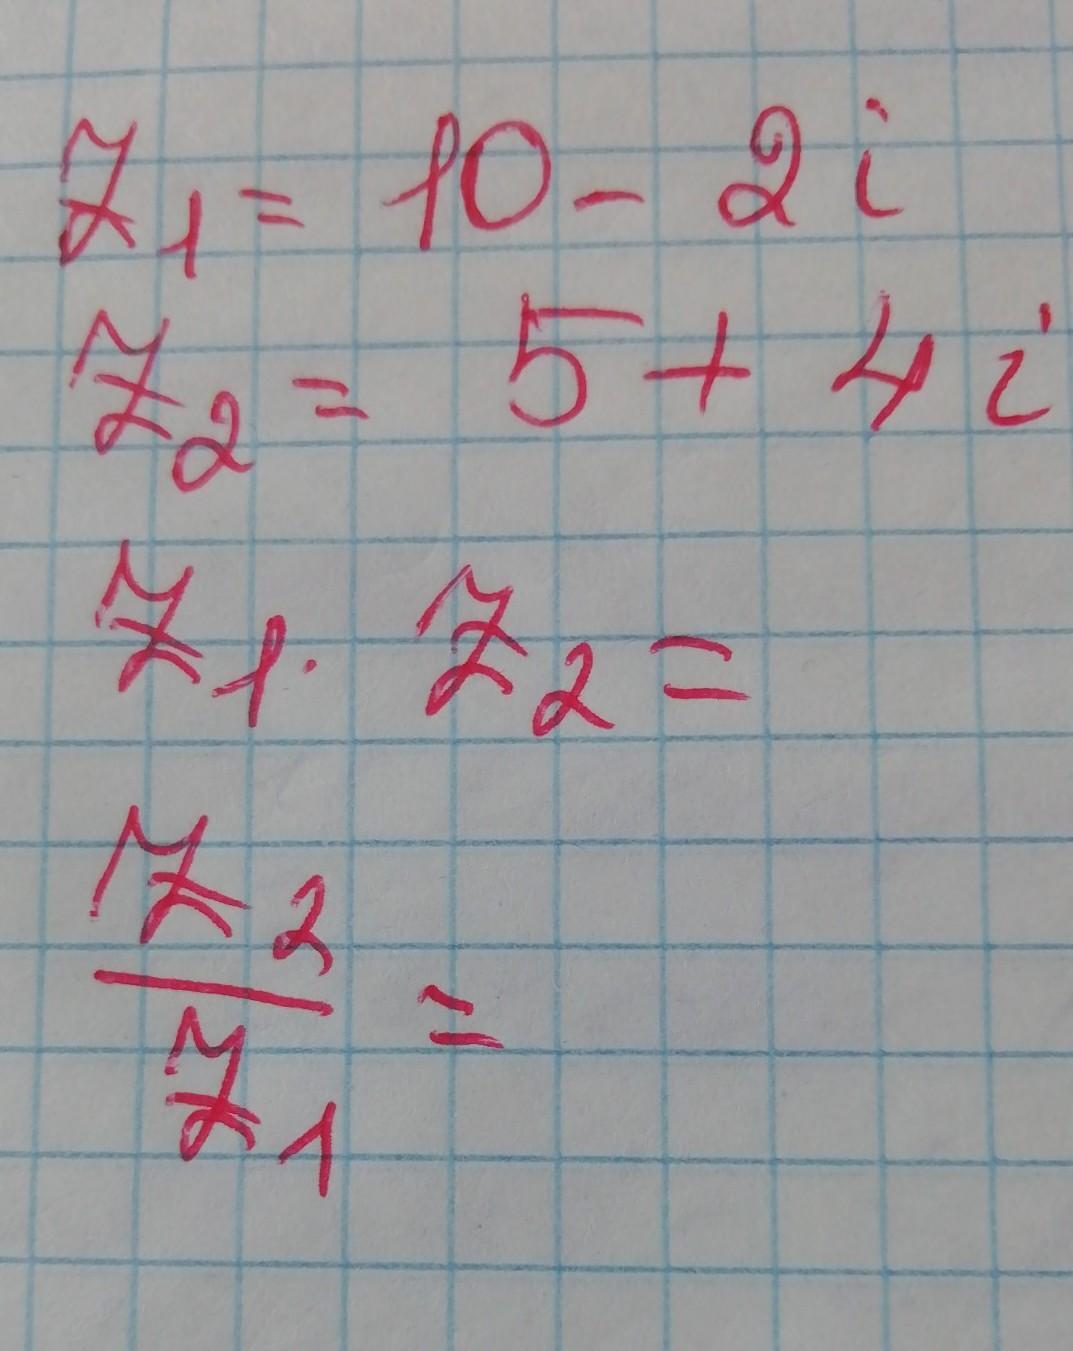 z₁ = 10 - 2i
z₂ = 5 + 4i
z₁ · z₂ =
z₂
z₁ =